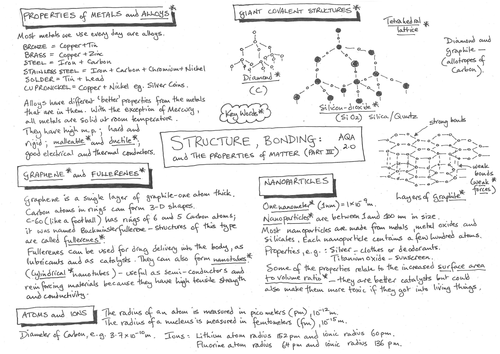 PROPERTIES of METALS and ALLOYS*
Most metals we use every day are alloys.
BRONZE = Copper + Tin
BRASS = Copper + Zinc
STEEL = Iron + Carbon
STAINLESS STEEL = Iron + Carbon + Chromium + Nickel
SOLDER = Tin + Lead
CUPRONICKEL = Copper + Nickel eg. Silver Coins.
Alloys have different 'better' properties from the metals
that are in them. With the exception of Mercury,
all metals are solid at room temperature.
They have high m.p; hard and
rigid; malleable and ductile*;
good electrical and thermal conductors.
GIANT COVALENT STRUCTURES*
Diamond*
(C)
Tetrahedral*
lattice
Silicon-dioxide*
(SiO2) Silica/Quartz
Diamond and
graphite -
(allotropes of
Carbon).
Key Words*
STRUCTURE, BONDING:
and THE PROPERTIES OF MATTER (PART III)
AQA
2.0
strong bonds
weak
bonds
(weak
forces)
Layers of Graphite*
GRAPHENE* and FULLERENES*
Graphene is a single layer of graphite-one atom thick.
Carbon atoms in rings can form 3-D shapes.
C-60 (like a football) has rings of 6 and 5 Carbon atoms;
it was named Buckminsterfullerene - structures of this type
are called fullerenes*
Fullerenes can be used for drug delivery into the body, as
lubricants and as catalysts. They can also form nanotubes*
(cylindrical* nanotubes) - useful as semi-conductors and
reinforcing materials because they have high tensile strength
and conductivity.
NANOPARTICLES
One nanometer* (1nm) = 1x10-9m.
Nanoparticles* are between 1 and 100 nm in size.
Most nanoparticles are made from metals, metal oxides and
silicates. Each nanoparticle contains a few hundred atoms.
Properties, e.g: Silver - clothes or deodorants.
Titanium oxide - sunscreen.
Some of the properties relate to the increased surface area
to volume ratio* - they are better catalysts but could
also make them more toxic if they got into living things.
ATOMS and IONS
The radius of an atom is measured in picometers (pm), 10-12m.
The radius of a nucleus is measured in femtometers (fm), 10-15m.
Diameter of Carbon, e.g. 3.7x10-10m. Ions: Lithium atom radius 152pm and ionic radius 60pm.
Fluorine atom radius 64pm and ionic radius 136pm.